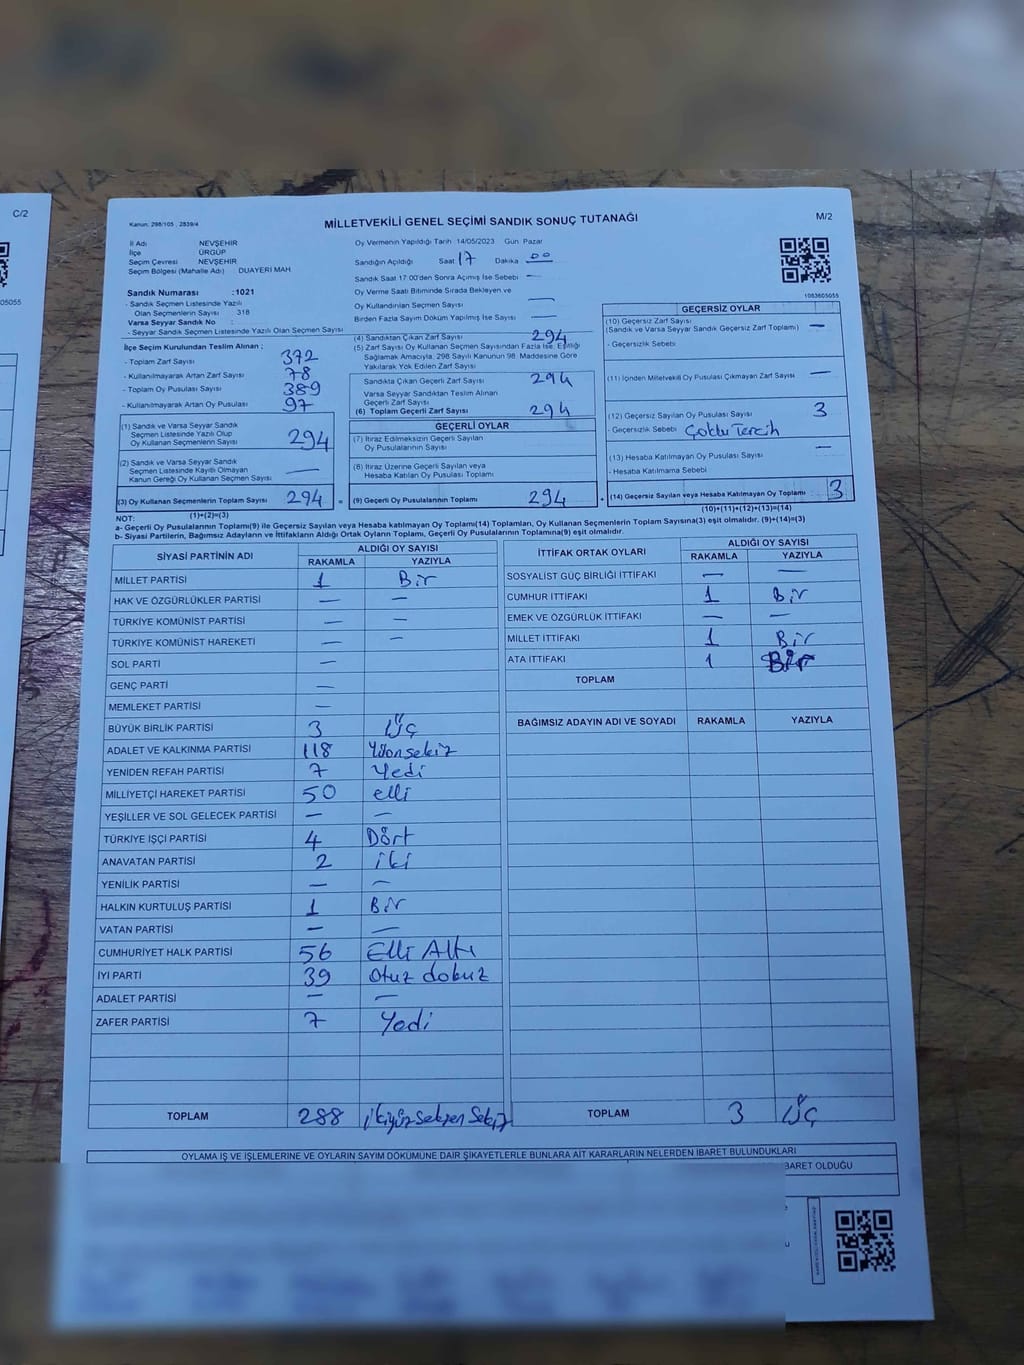 C/2
05055
Kanun: 298/105 , 2839/4
MİLLETVEKİLİ GENEL SEÇİMİ SANDIK SONUÇ TUTANAĞI
M/2
İl Adı NEVŞEHİR
İlçe ÜRGÜP
Seçim Çevresi NEVŞEHİR
Seçim Bölgesi (Mahalle Adı) : DUAYERİ MAH.
Sandık Numarası :1021
- Sandık Seçmen Listesinde Yazılı
Olan Seçmenlerin Sayısı 318
Varsa Seyyar Sandık No :
- Seyyar Sandık Seçmen Listesinde Yazılı Olan Seçmen Sayısı
İlçe Seçim Kurulundan Teslim Alınan :
- Toplam Zarf Sayısı 372
- Kullanılmayarak Artan Zarf Sayısı 78
- Toplam Oy Pusulası Sayısı 389
- Kullanılmayarak Artan Oy Pusulası 97
(1) Sandık ve Varsa Seyyar Sandık
Seçmen Listesinde Yazılı Olup
Oy Kullanan Seçmenlerin Sayısı 294
(2) Sandık ve Varsa Seyyar Sandık
Seçmen Listesinde Kayıtlı Olmayan
Kanun Gereği Oy Kullanan Seçmenler —
(3) Oy Kullanan Seçmenlerin Toplam Sayısı 294 =
(1)+(2)=(3)
Oy Vermenin Yapıldığı Tarih 14/05/2023 Gün Pazar
Sandığın Açıldığı Saat 17 Dakika 00
Sandık Saat 17:00'den Sonra Açılmış İse Sebebi —
Oy Verme Saati Bitiminde Sırada Bekleyen ve
Oy Kullandırılan Seçmen Sayısı —
Birden Fazla Sayım Döküm Yapılmış İse Sayısı —
(4) Sandıktan Çıkan Zarf Sayısı 294
(5) Zarf Sayısı Oy Kullanan Seçmen Sayısından Fazla İse, Eşitliği
Sağlamak Amacıyla, 298 Sayılı Kanunun 98. Maddesine Göre
Yakılarak Yok Edilen Zarf Sayısı
Sandıkta Çıkan Geçerli Zarf Sayısı 294
Varsa Seyyar Sandıktan Teslim Alınan
Geçerli Zarf Sayısı
(6) Toplam Geçerli Zarf Sayısı 294
GEÇERLİ OYLAR
(7) İtiraz Edilmeksizin Geçerli Sayılan
Oy Pusulalarının Sayısı
(8) İtiraz Üzerine Geçerli Sayılan veya
Hesaba Katılan Oy Pusulası Toplamı
(9) Geçerli Oy Pusulalarının Toplamı 294 +
1083605055
GEÇERSİZ OYLAR
(10) Geçersiz Zarf Sayısı
(Sandık ve Varsa Seyyar Sandık Geçersiz Zarf Toplamı) —
- Geçersizlik Sebebi
(11) İçinden Milletvekili Oy Pusulası Çıkmayan Zarf Sayısı —
(12) Geçersiz Sayılan Oy Pusulası Sayısı 3
- Geçersizlik Sebebi Çoklu Tercih
(13) Hesaba Katılmayan Oy Pusulası Sayısı —
- Hesaba Katılmama Sebebi
(14) Geçersiz Sayılan veya Hesaba Katılmayan Oy Toplamı 3
(10)+(11)+(12)+(13)=(14)
NOT:
a- Geçerli Oy Pusulalarının Toplamı(9) ile Geçersiz Sayılan veya Hesaba katılmayan Oy Toplamı(14) Toplamları, Oy Kullanan Seçmenlerin Toplam Sayısına(3) eşit olmalıdır. (9)+(14)=(3)
b- Siyasi Partilerin, Bağımsız Adayların ve İttifakların Aldığı Ortak Oyların Toplamı, Geçerli Oy Pusulalarının Toplamına(9) eşit olmalıdır.
SİYASİ PARTİNİN ADI ALDIĞI OY SAYISI
RAKAMLA YAZIYLA
MİLLET PARTİSİ 1 Bir
HAK VE ÖZGÜRLÜKLER PARTİSİ — —
TÜRKİYE KOMÜNİST PARTİSİ — —
TÜRKİYE KOMÜNİST HAREKETİ — —
SOL PARTİ —
GENÇ PARTİ —
MEMLEKET PARTİSİ —
BÜYÜK BİRLİK PARTİSİ 3 Üç
ADALET VE KALKINMA PARTİSİ 118 Yüzonsekiz
YENİDEN REFAH PARTİSİ 7 Yedi
MİLLİYETÇİ HAREKET PARTİSİ 50 elli
YEŞİLLER VE SOL GELECEK PARTİSİ — —
TÜRKİYE İŞÇİ PARTİSİ 4 Dört
ANAVATAN PARTİSİ 2 iki
YENİLİK PARTİSİ — —
HALKIN KURTULUŞ PARTİSİ 1 Bir
VATAN PARTİSİ — —
CUMHURİYET HALK PARTİSİ 56 Elli Altı
İYİ PARTİ 39 Otuz dokuz
ADALET PARTİSİ — —
ZAFER PARTİSİ 7 Yedi
TOPLAM 288 ikiyüz seksen sekiz
İTTİFAK ORTAK OYLARI ALDIĞI OY SAYISI
RAKAMLA YAZIYLA
SOSYALİST GÜÇ BİRLİĞİ İTTİFAKI — —
CUMHUR İTTİFAKI 1 Bir
EMEK VE ÖZGÜRLÜK İTTİFAKI — —
MİLLET İTTİFAKI 1 Bir
ATA İTTİFAKI 1 Bir
TOPLAM
BAĞIMSIZ ADAYIN ADI VE SOYADI RAKAMLA YAZIYLA
TOPLAM 3 Üç
OYLAMA İŞ VE İŞLEMLERİNE VE OYLARIN SAYIM DÖKÜMÜNE DAİR ŞİKAYETLERLE BUNLARA AİT KARARLARIN NELERDEN İBARET BULUNDUKLARI
BARET OLDUĞU